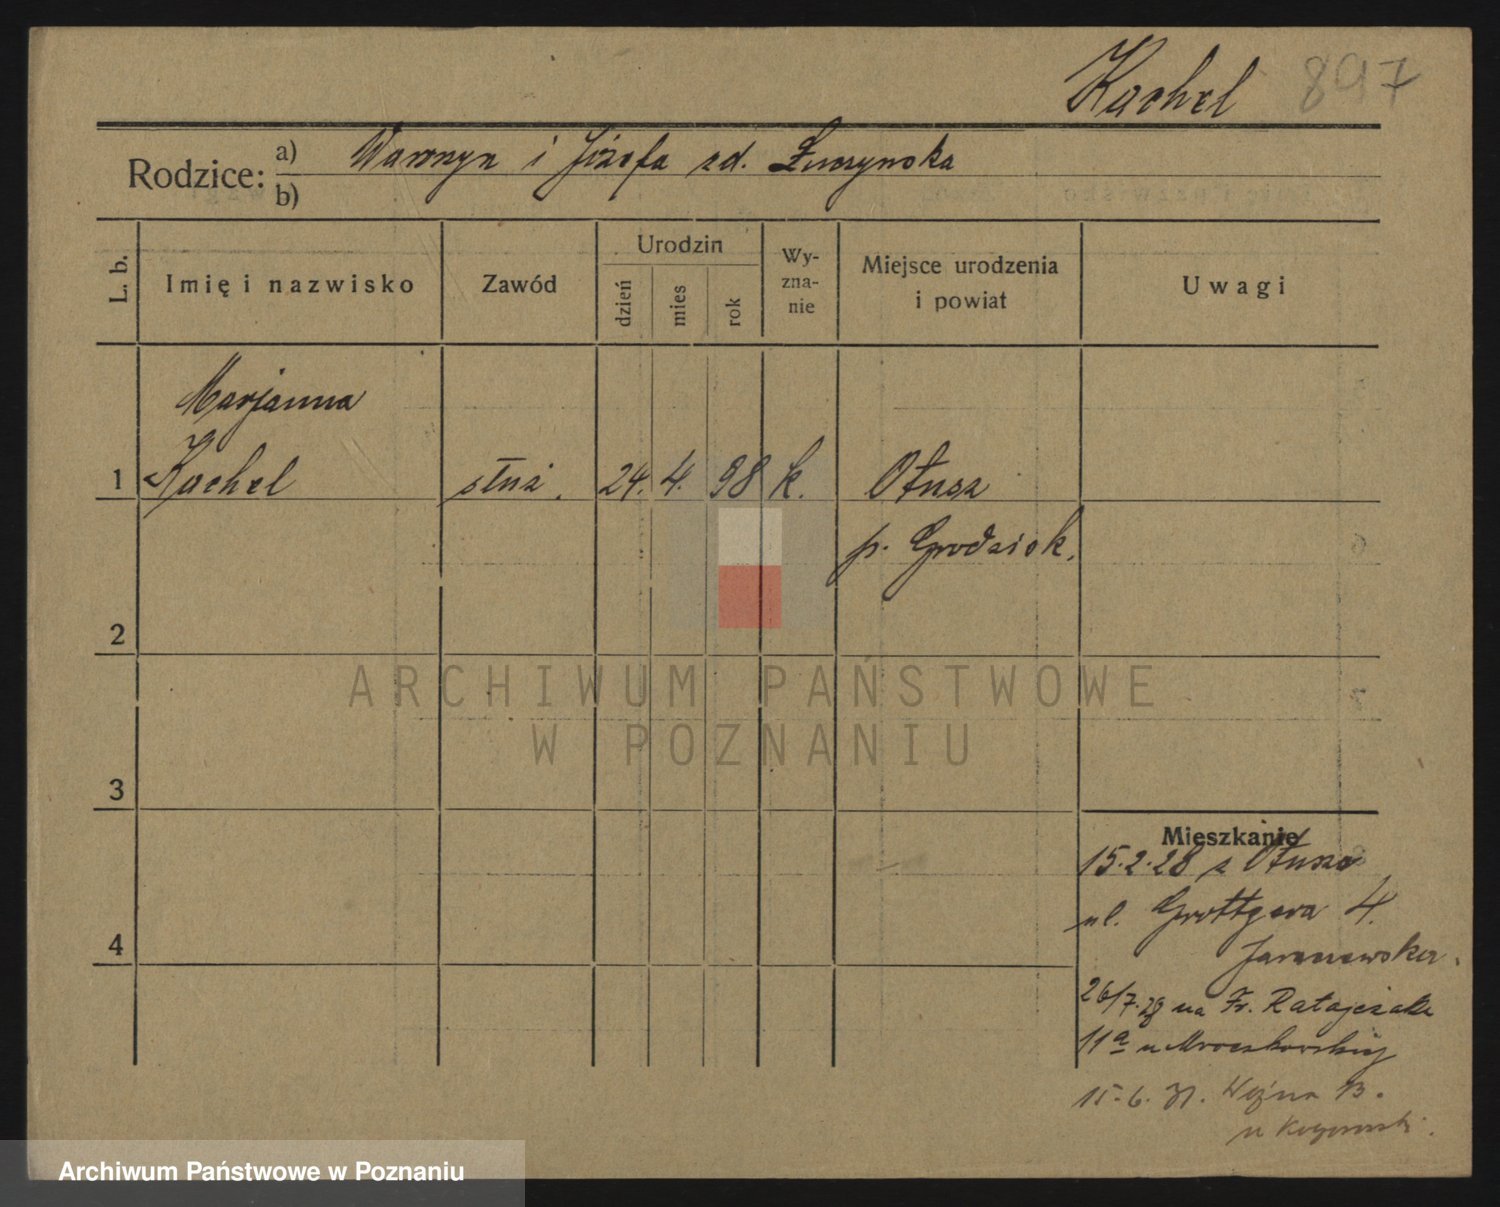 Kachel 897
Rodzice: a) Wawrzyn i Józefa zd. Łuczynska
b)
L. b. Imię i nazwisko Zawód Urodzin dzień mies rok Wy-zna-nie Miejsce urodzenia i powiat Uwagi
Marjanna
1 Kachel służ. 24. 4. 98 k. Otusz
p. Grodzisk.
2
3
4
Mieszkanie
15.2.28 z Otusza
ul. Grottgera 4.
26/7.28 na Fr. Ratajczaka
11a u Mroczkowskiej
15.6.31. Woźna 13.
u
ARCHIWUM PAŃSTWOWE
W POZNANIU
Archiwum Państwowe w Poznaniu